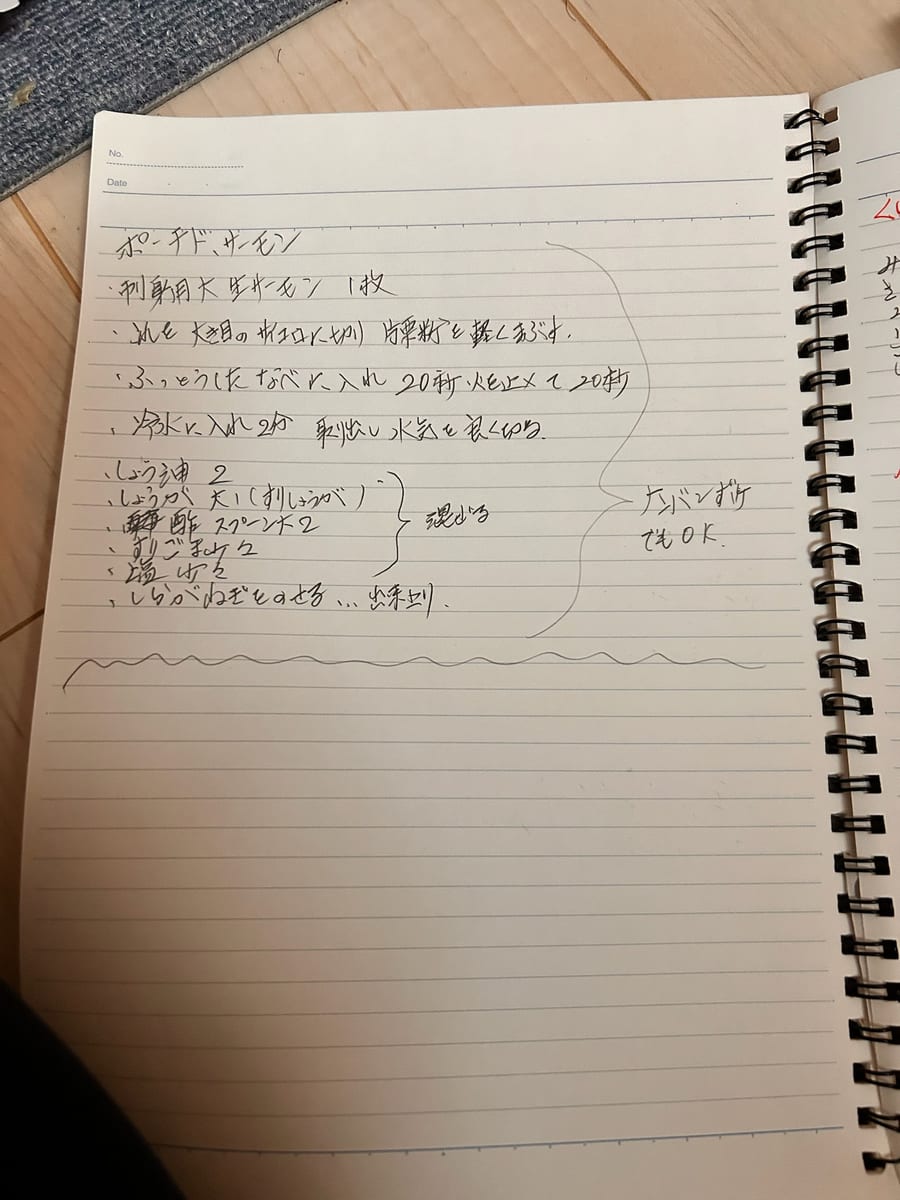 No.
Date
ポーチド、サーモン
・刺身用大生サーモン 1枚
・これを 大き目のサイコロに切り 片栗粉を軽くまぶす.
・ふっとうしたなべに入れ 20秒 火を止メて20秒
・冷水に入れ2分 取り出し水気を良く切る.
・しょう油 2
・しょうが 大1(すりしょうが)
・酢 スプーン大2
・すりごま少々
・塩 少々
混ぜる
・しらがねぎをのせる...出来上り.
ナンバンずけ
でもOK.